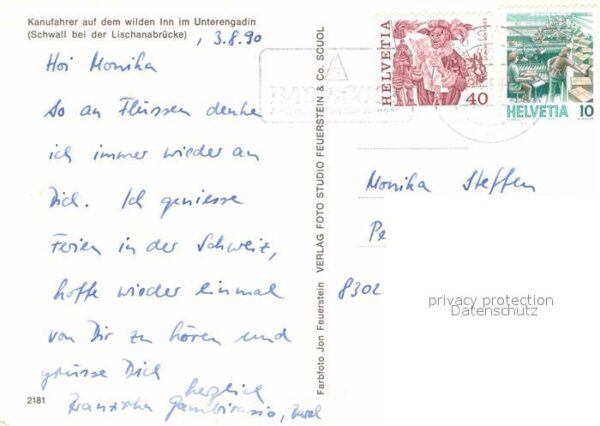 Kanufahrer auf dem wilden Inn im Unterengadin
(Schwall bei der Lischanabrücke)
, 3.8.90
Hoi Monika
So an Flüssen denke
ich immer wieder an
Dich. Ich geniesse
Ferien in der Schweiz,
hoffe wieder einmal
von Dir zu hören und
grüsse Dich
herzlich
Franziska Gambirasio, Basel
2181
Farbfoto Jon Feuerstein VERLAG FOTO STUDIO FEUERSTEIN & Co. SCUOL
HELVETIA
40
HELVETIA
10
BAD SCUOL
Monika Steffen
Pe
8302
privacy protection
Datenschutz